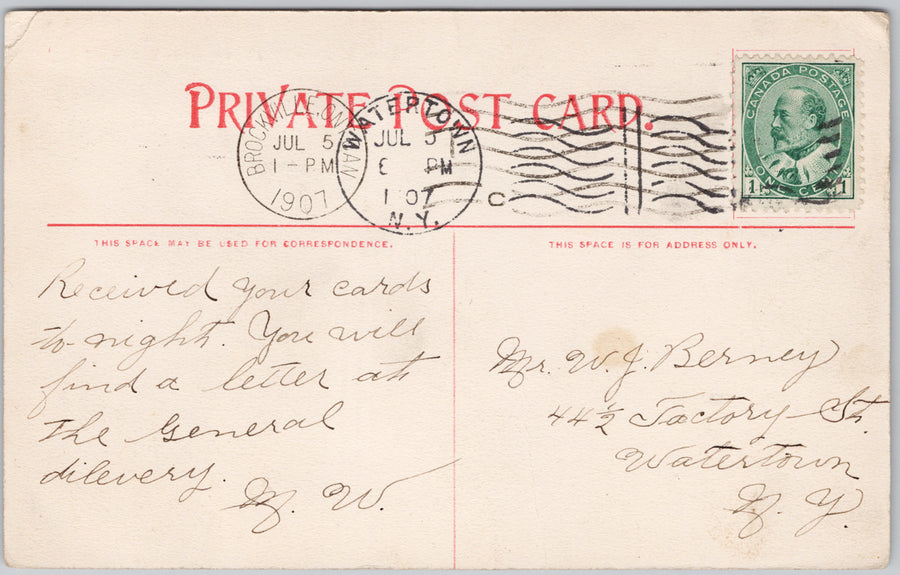 PRIVATE POST CARD.
BROCKVILLE, ONT. CAN
JUL 5
1 - PM
1907
WATERTOWN
JUL 5
8 PM
1907
N.Y.
C
CANADA POSTAGE
ONE CENT
1 1
THIS SPACE MAY BE USED FOR CORRESPONDENCE.
THIS SPACE IS FOR ADDRESS ONLY.
Received your cards
to-night. You will
find a letter at
the General
dilevery.
M. W.
Mr. W. J. Berney
44½ Factory St.
Watertown
N. Y.